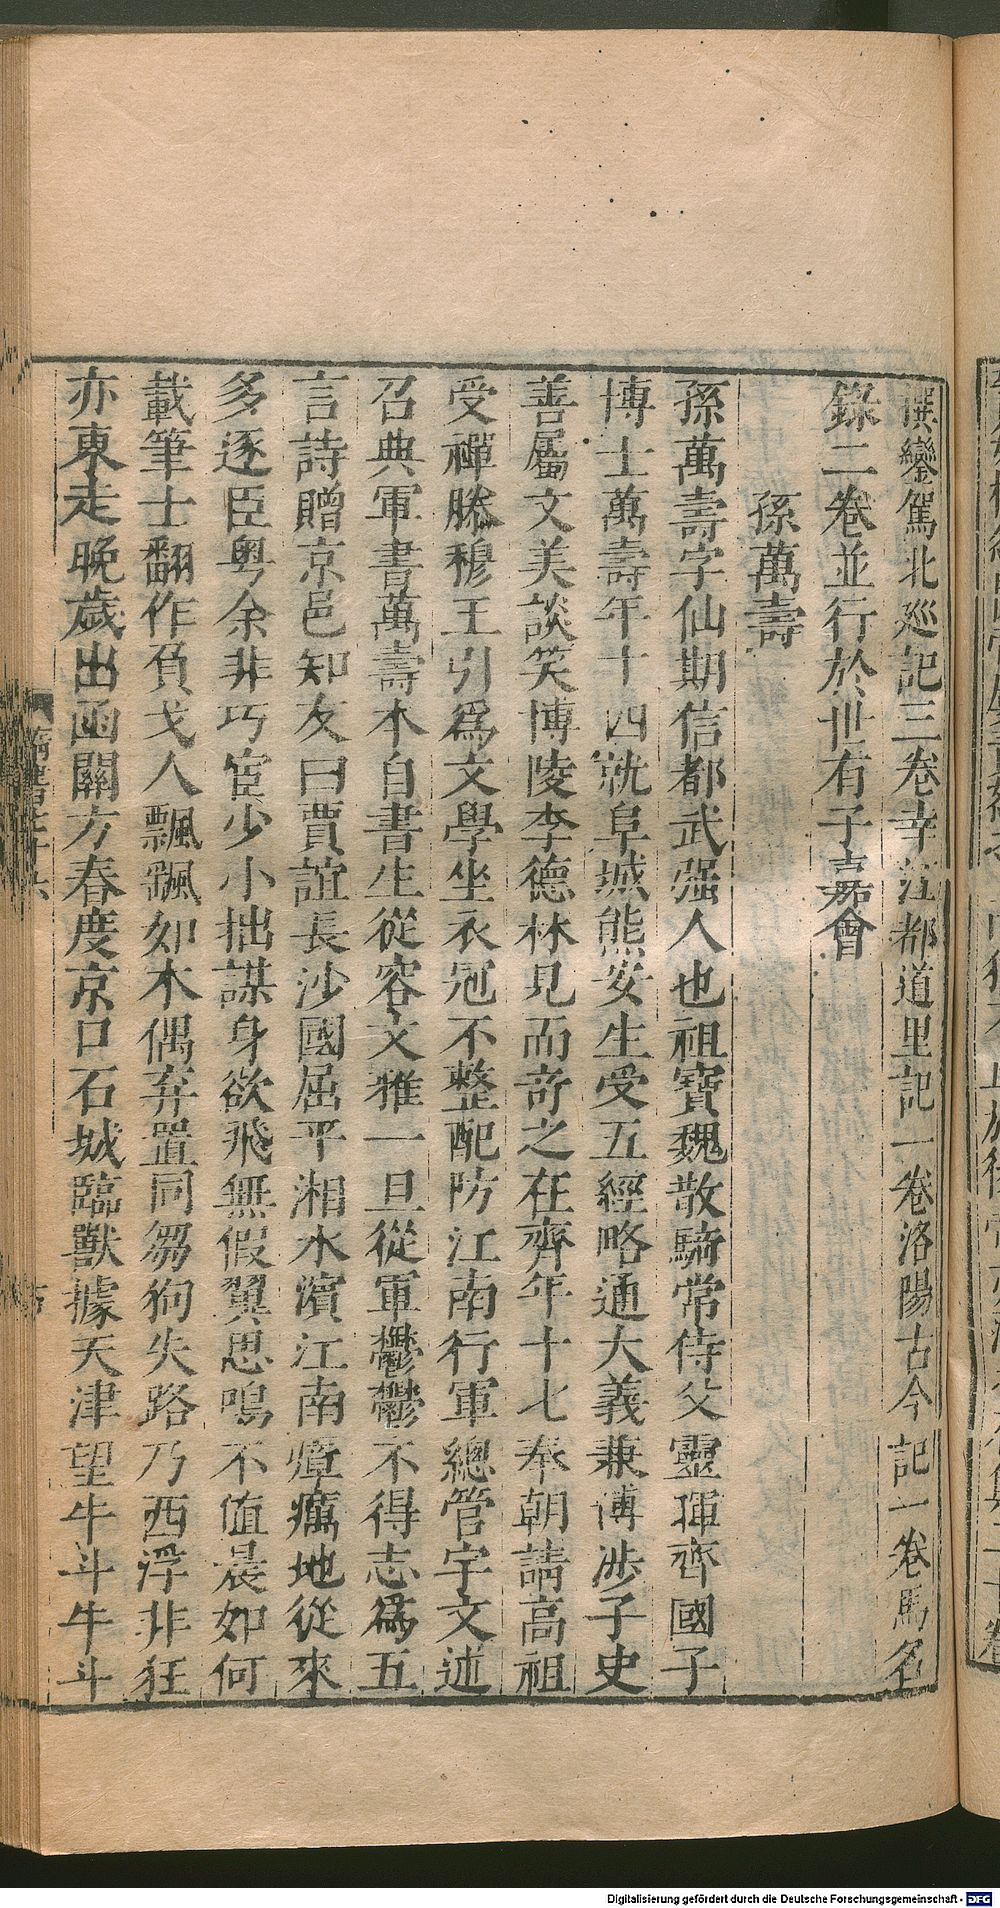 撰鑾駕北巡記三卷幸江都道里記一卷洛陽古今記一卷馬名
錄二卷並行於世有子嘉會
孫萬壽
孫萬壽字仙期信都武强人也祖寶魏散騎常侍父靈暉齊國子
博士萬壽年十四就阜城熊安生受五經略通大義兼博涉子史
善屬文美談笑博陵李德林見而奇之在齊年十七奉朝請高祖
受禪滕穆王引爲文學坐衣冠不整配防江南行軍總管宇文述
召典軍書萬壽本自書生從容文雅一旦從軍鬱鬱不得志爲五
言詩贈京邑知友曰賈誼長沙國屈平湘水濱江南瘴癘地從來
多逐臣粤余非巧宦少小拙謀身欲飛無假翼思鳴不值晨如何
載筆士翻作負戈人飄飄如木偶弃置同芻狗失路乃西浮非狂
亦東走晚歲出函關方春度京口石城臨獸據天津望牛斗牛斗
Digitalisierung gefördert durch die Deutsche Forschungsgemeinschaft - DFG